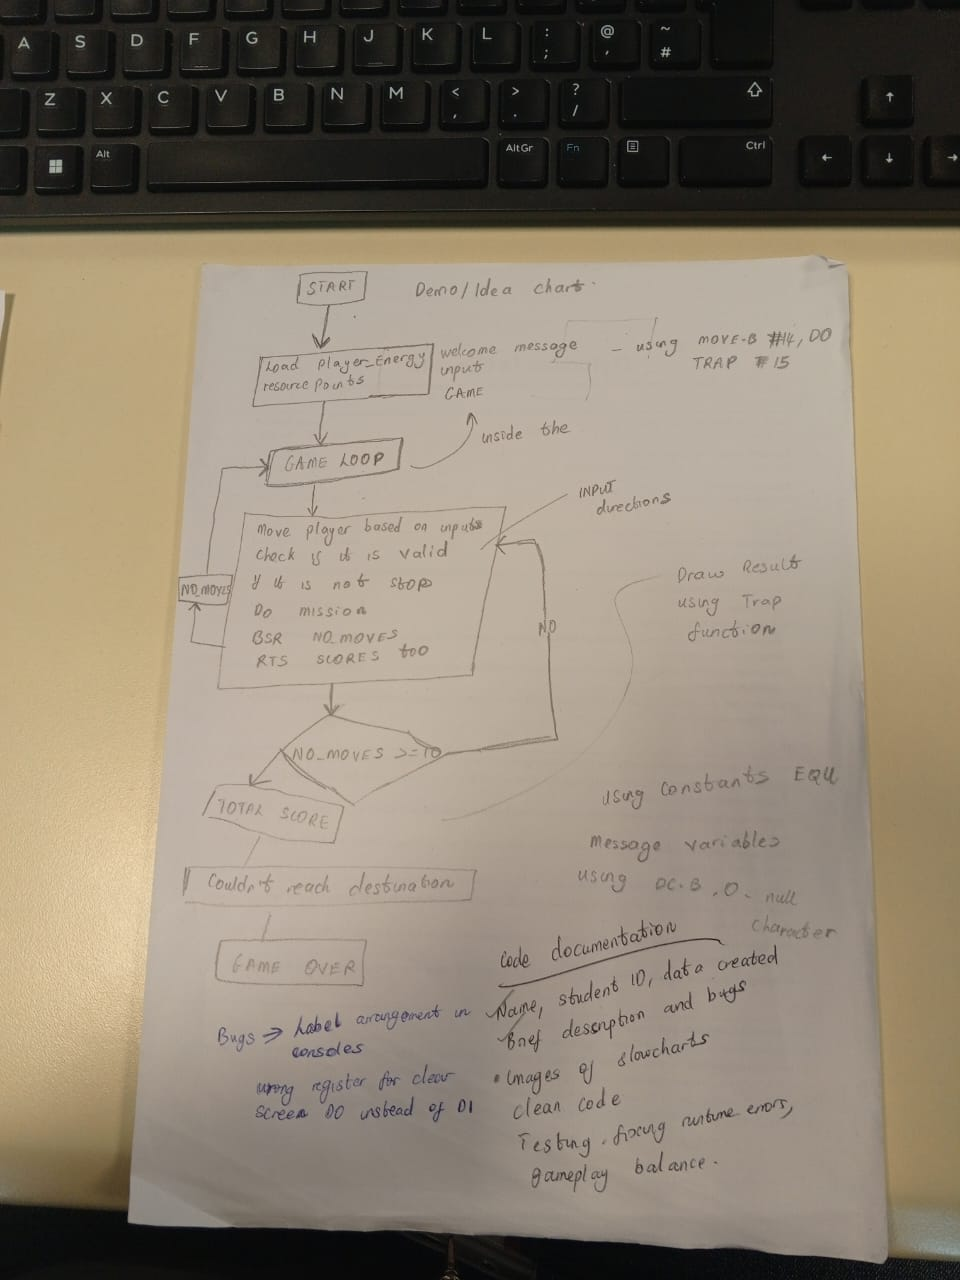 A S D F G H J K L : ; @ ' ~ #
Z X C V B N M < , > . ? /
Alt AltGr Fn Ctrl
START
Demo/Idea chart.
Load Player_Energy
resource points
welcome message - using MOVE.B #14, D0
TRAP #15
input
GAME
inside the
GAME LOOP
INPUT
directions
Move player based on inputs
check if it is valid
if it is not stop
Do mission
BSR NO_MOVES
RTS SCORES too
NO_MOVES
NO
Draw Result
using Trap
function
NO_MOVES >= 10
TOTAL SCORE
Couldn't reach destination
GAME OVER
using constants EQU
message variables
using DC.B, 0 - null
character
Code documentation
Name, student ID, data created
Brief description and bugs
• Images of flowcharts
clean code
Testing, fixing runtime errors,
gameplay balance.
Bugs → Label arrangement in
consoles
wrong register for clear
screen D0 instead of D1